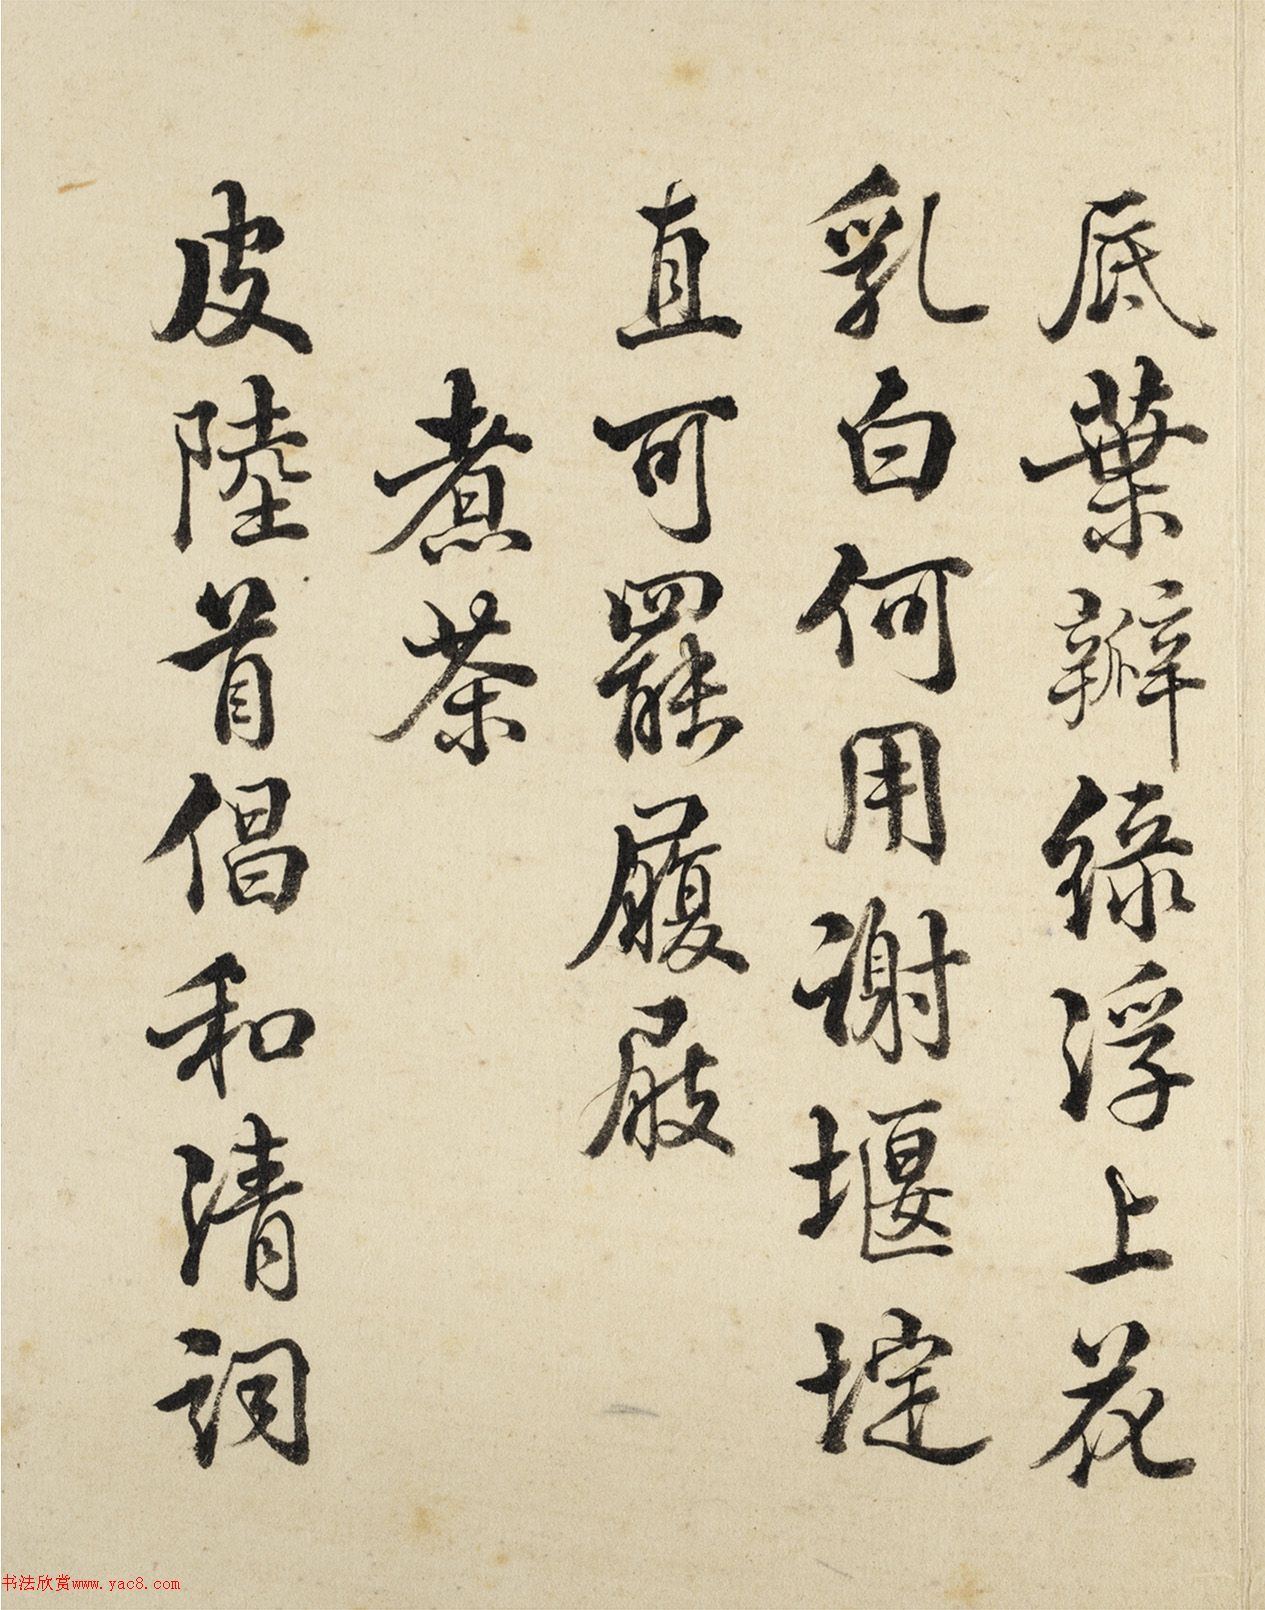 底葉辦綠浮上花
乳白何用謝堰埞
直可罷履屐
煮茶
皮陸首倡和清詞
书法欣赏www.yac8.com